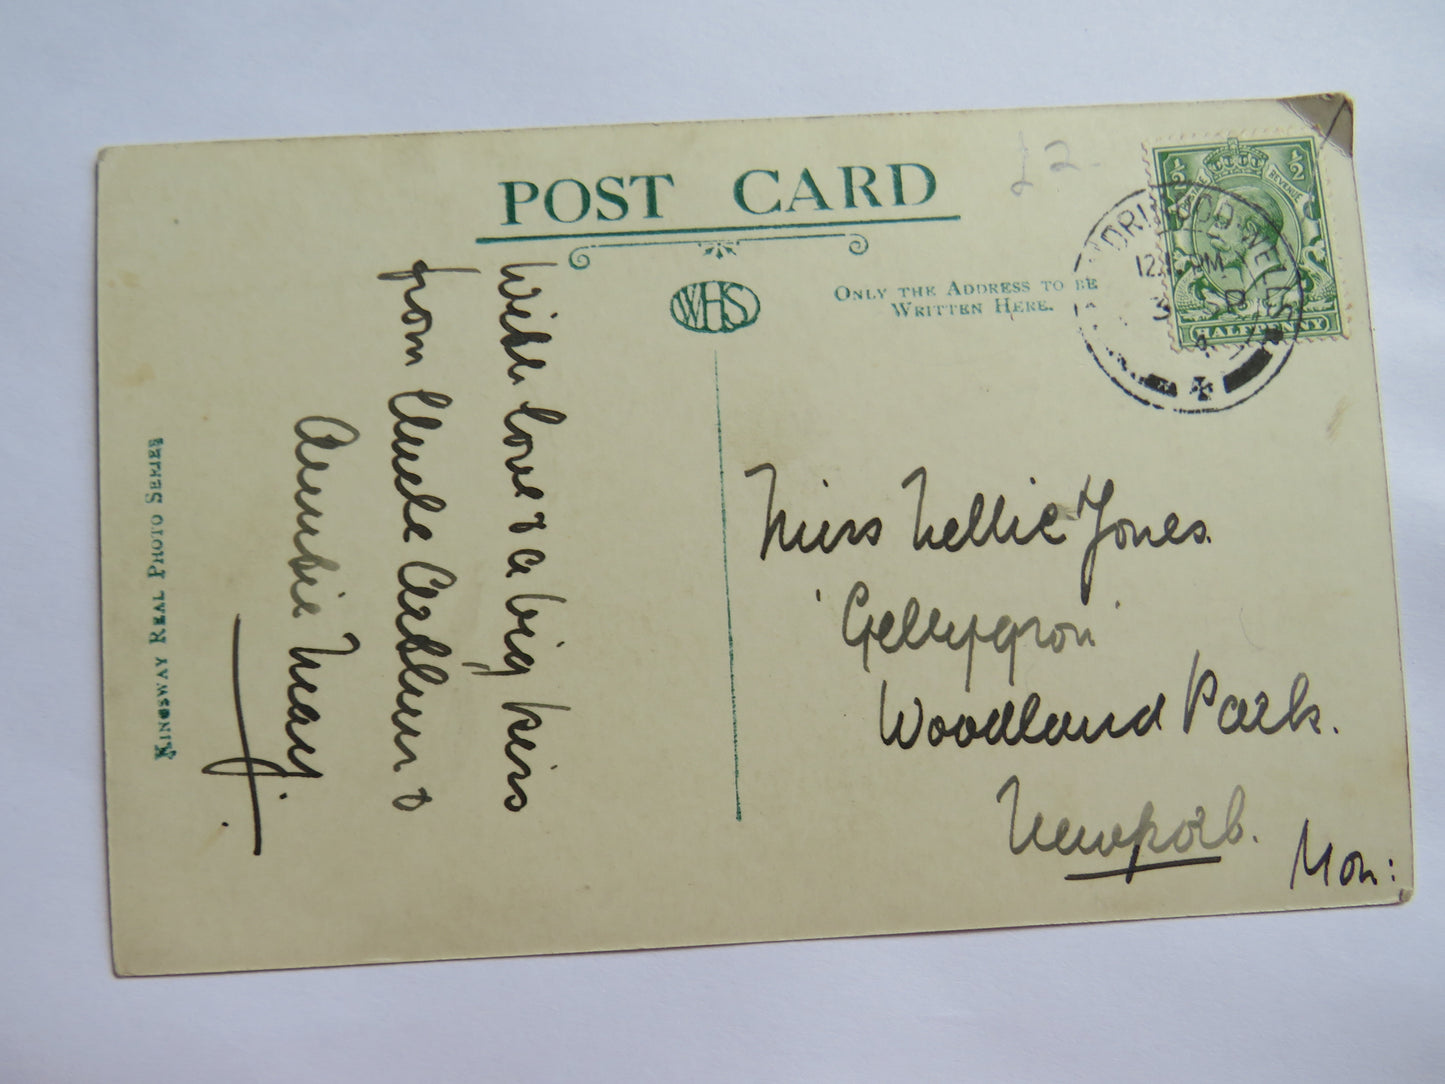 POST CARD
£2-
WHS
ONLY THE ADDRESS TO BE
WRITTEN HERE.
1/2 1/2
REVENUE
HALFPENNY
LLANDRINDOD-WELLS
PM
3 SP
With love & a big kiss
from Uncle Arthur &
Auntie May.
Miss Nellie Jones.
'Gellygron'
Woodland Park.
Newport.
Mon:
KINGSWAY REAL PHOTO SERIES